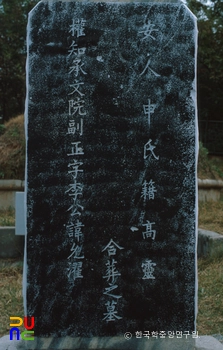 權知承文院副正字李公諱允濯
安人申氏籍高靈
合葬之墓
© 한국학중앙연구원